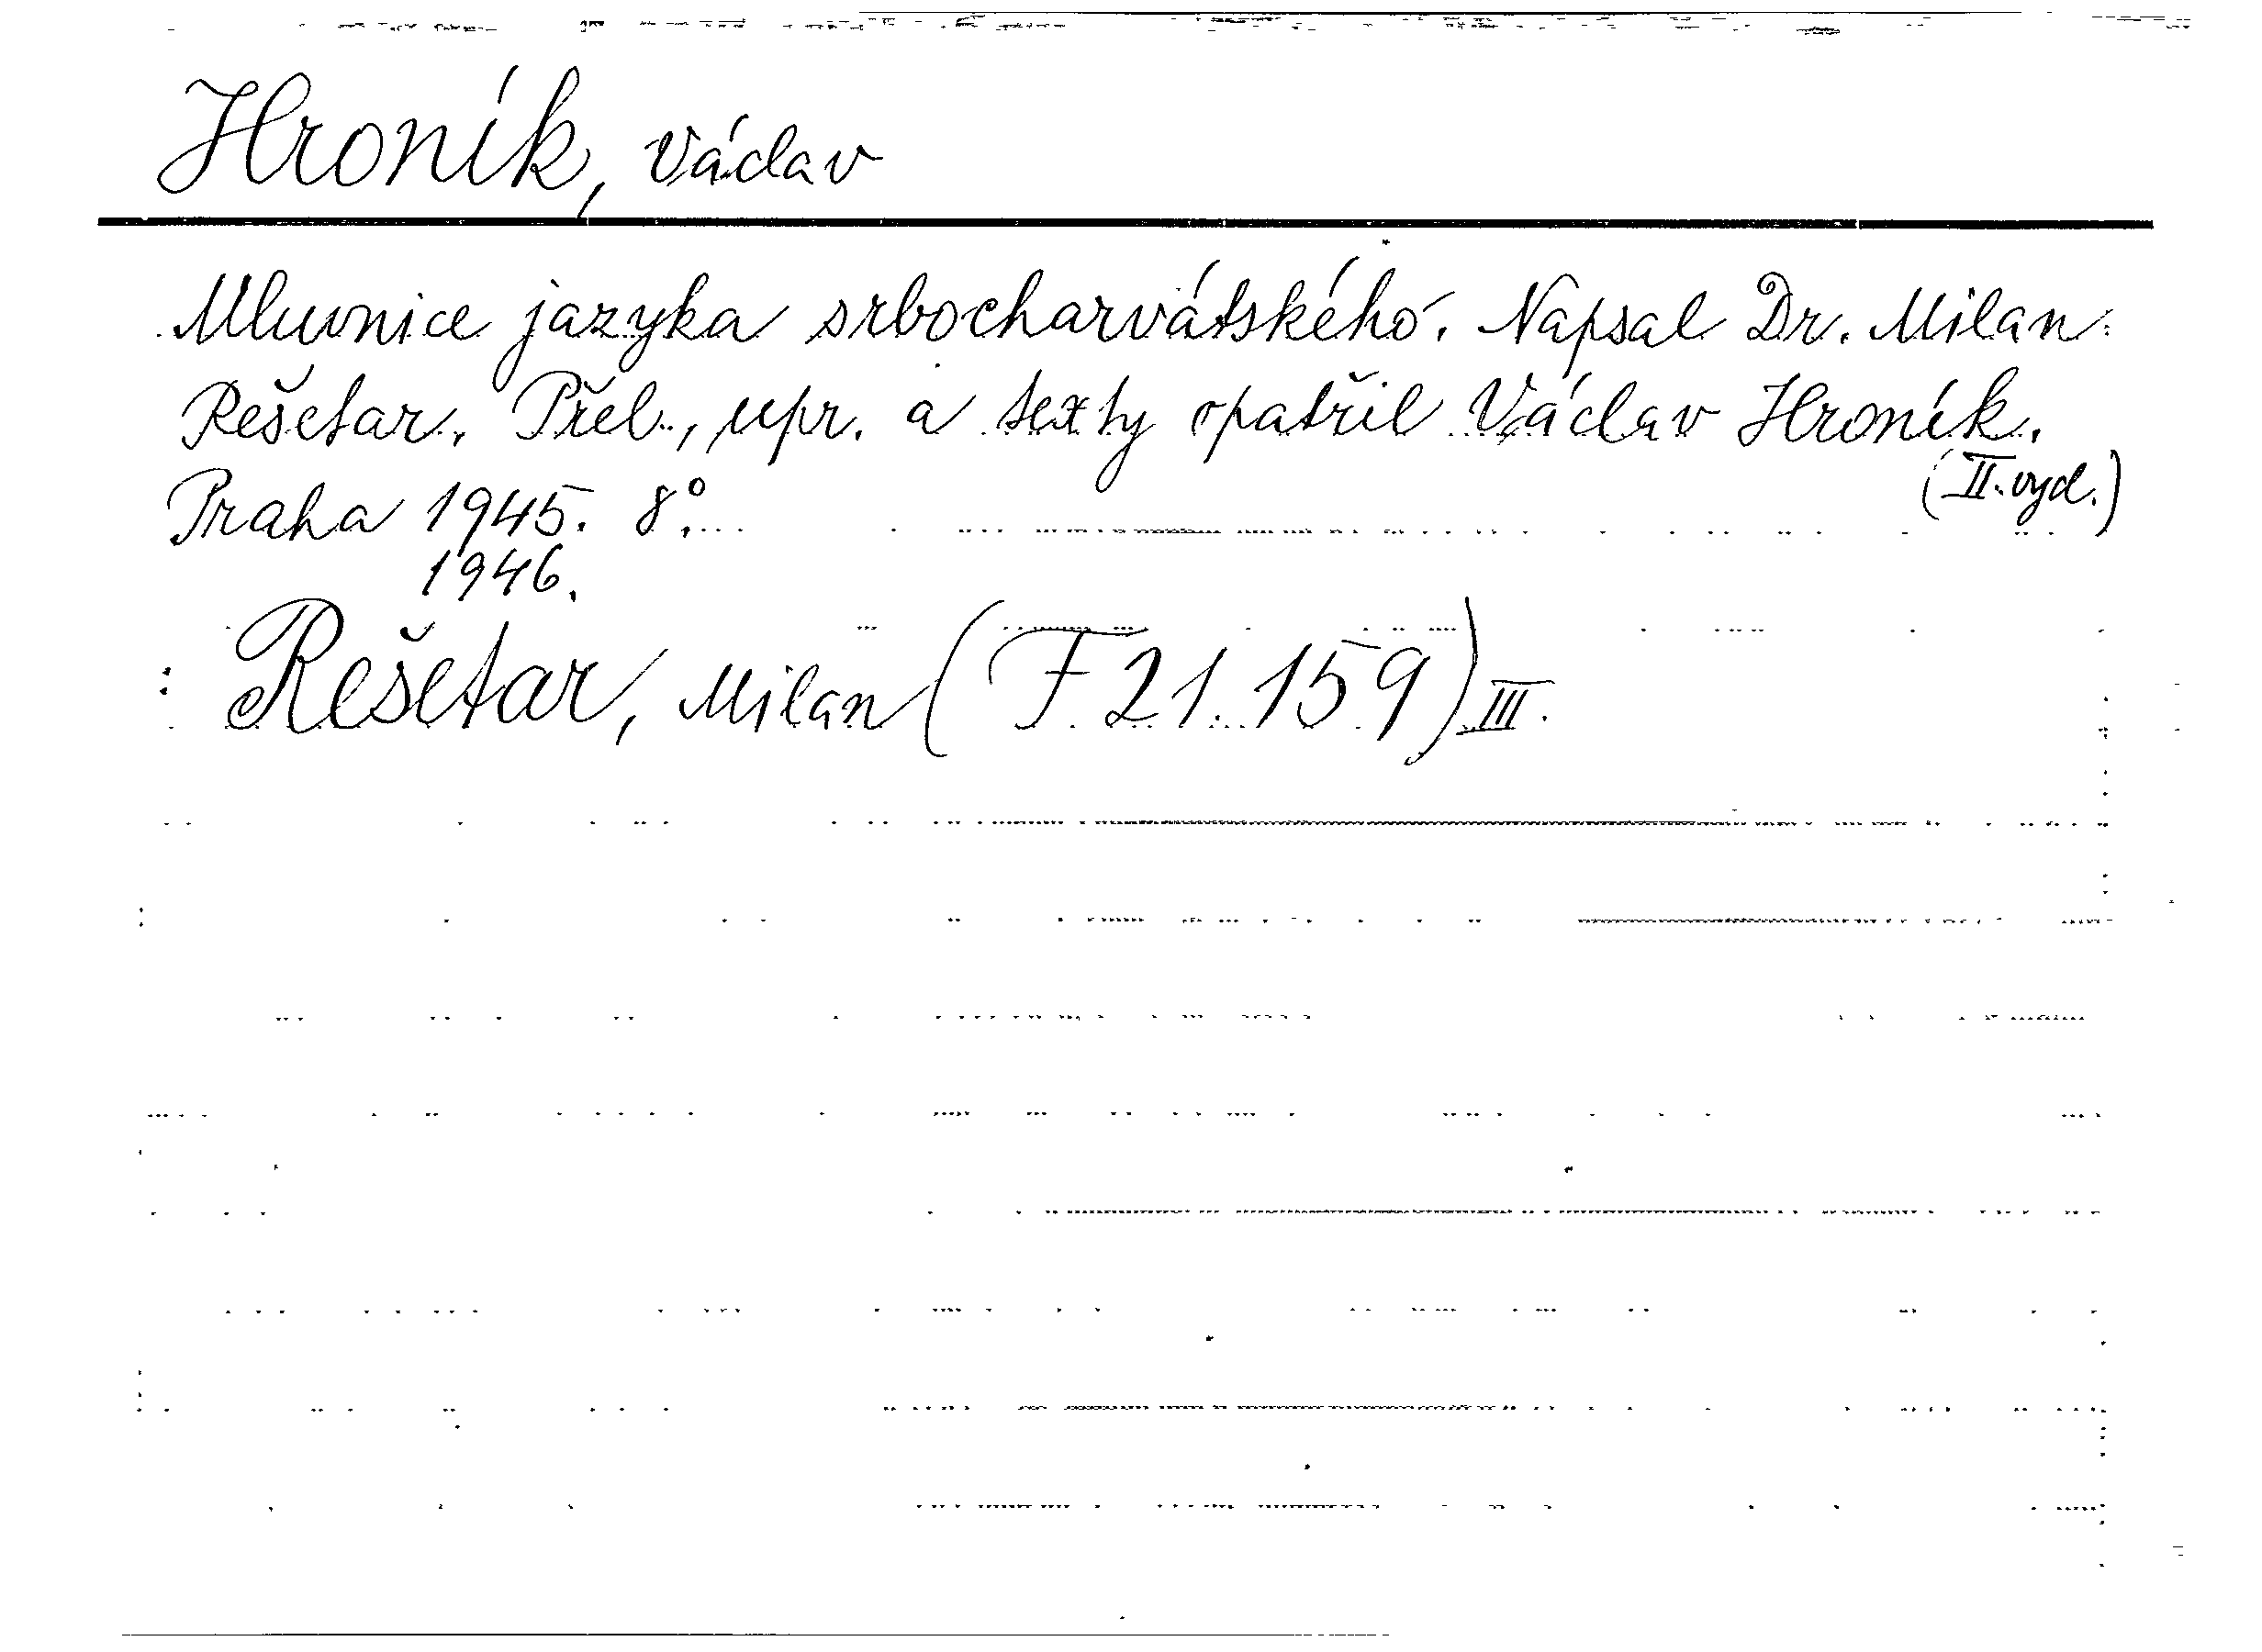 Hroník, Václav
Mluvnice jazyka srbocharvátského. Napsal Dr. Milan
Rešetar. Přel., upr. a texty opatřil Václav Hroník.
(II. vyd.)
Praha 1945. 8°.
1946.
Rešetar, Milan (F 21.159) III.